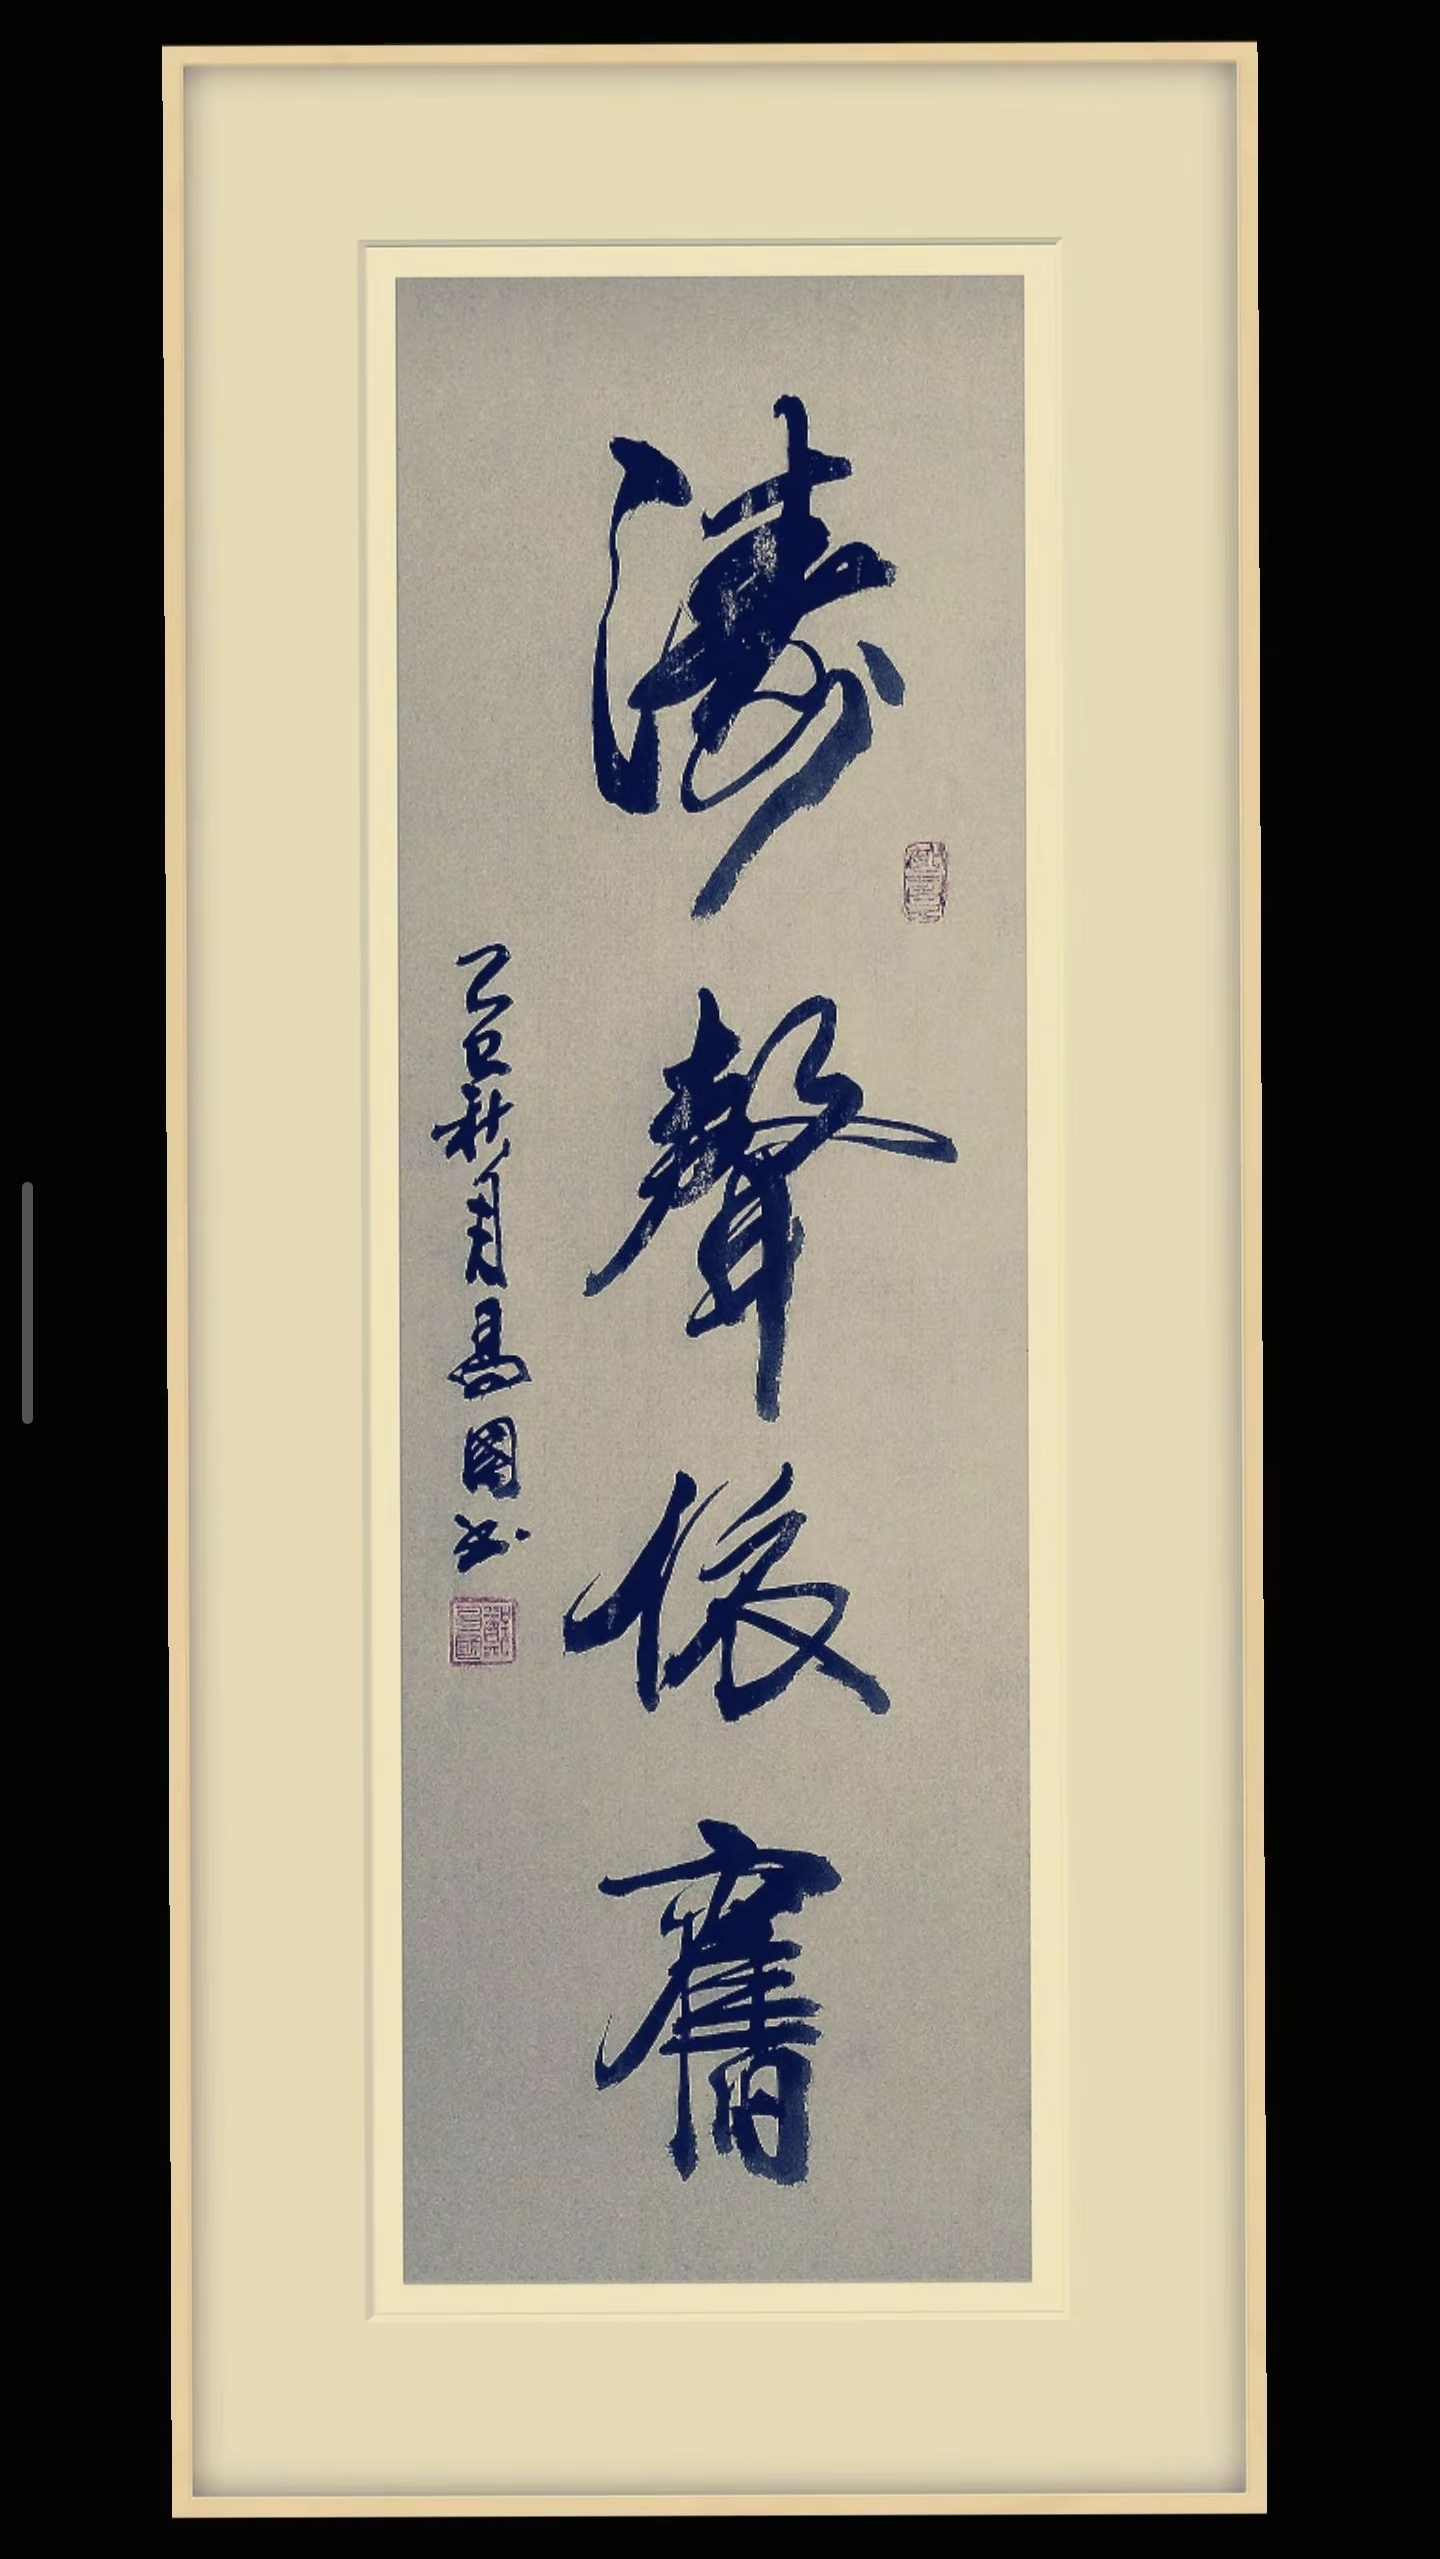 濤聲依舊
乙巳秋月昌國书